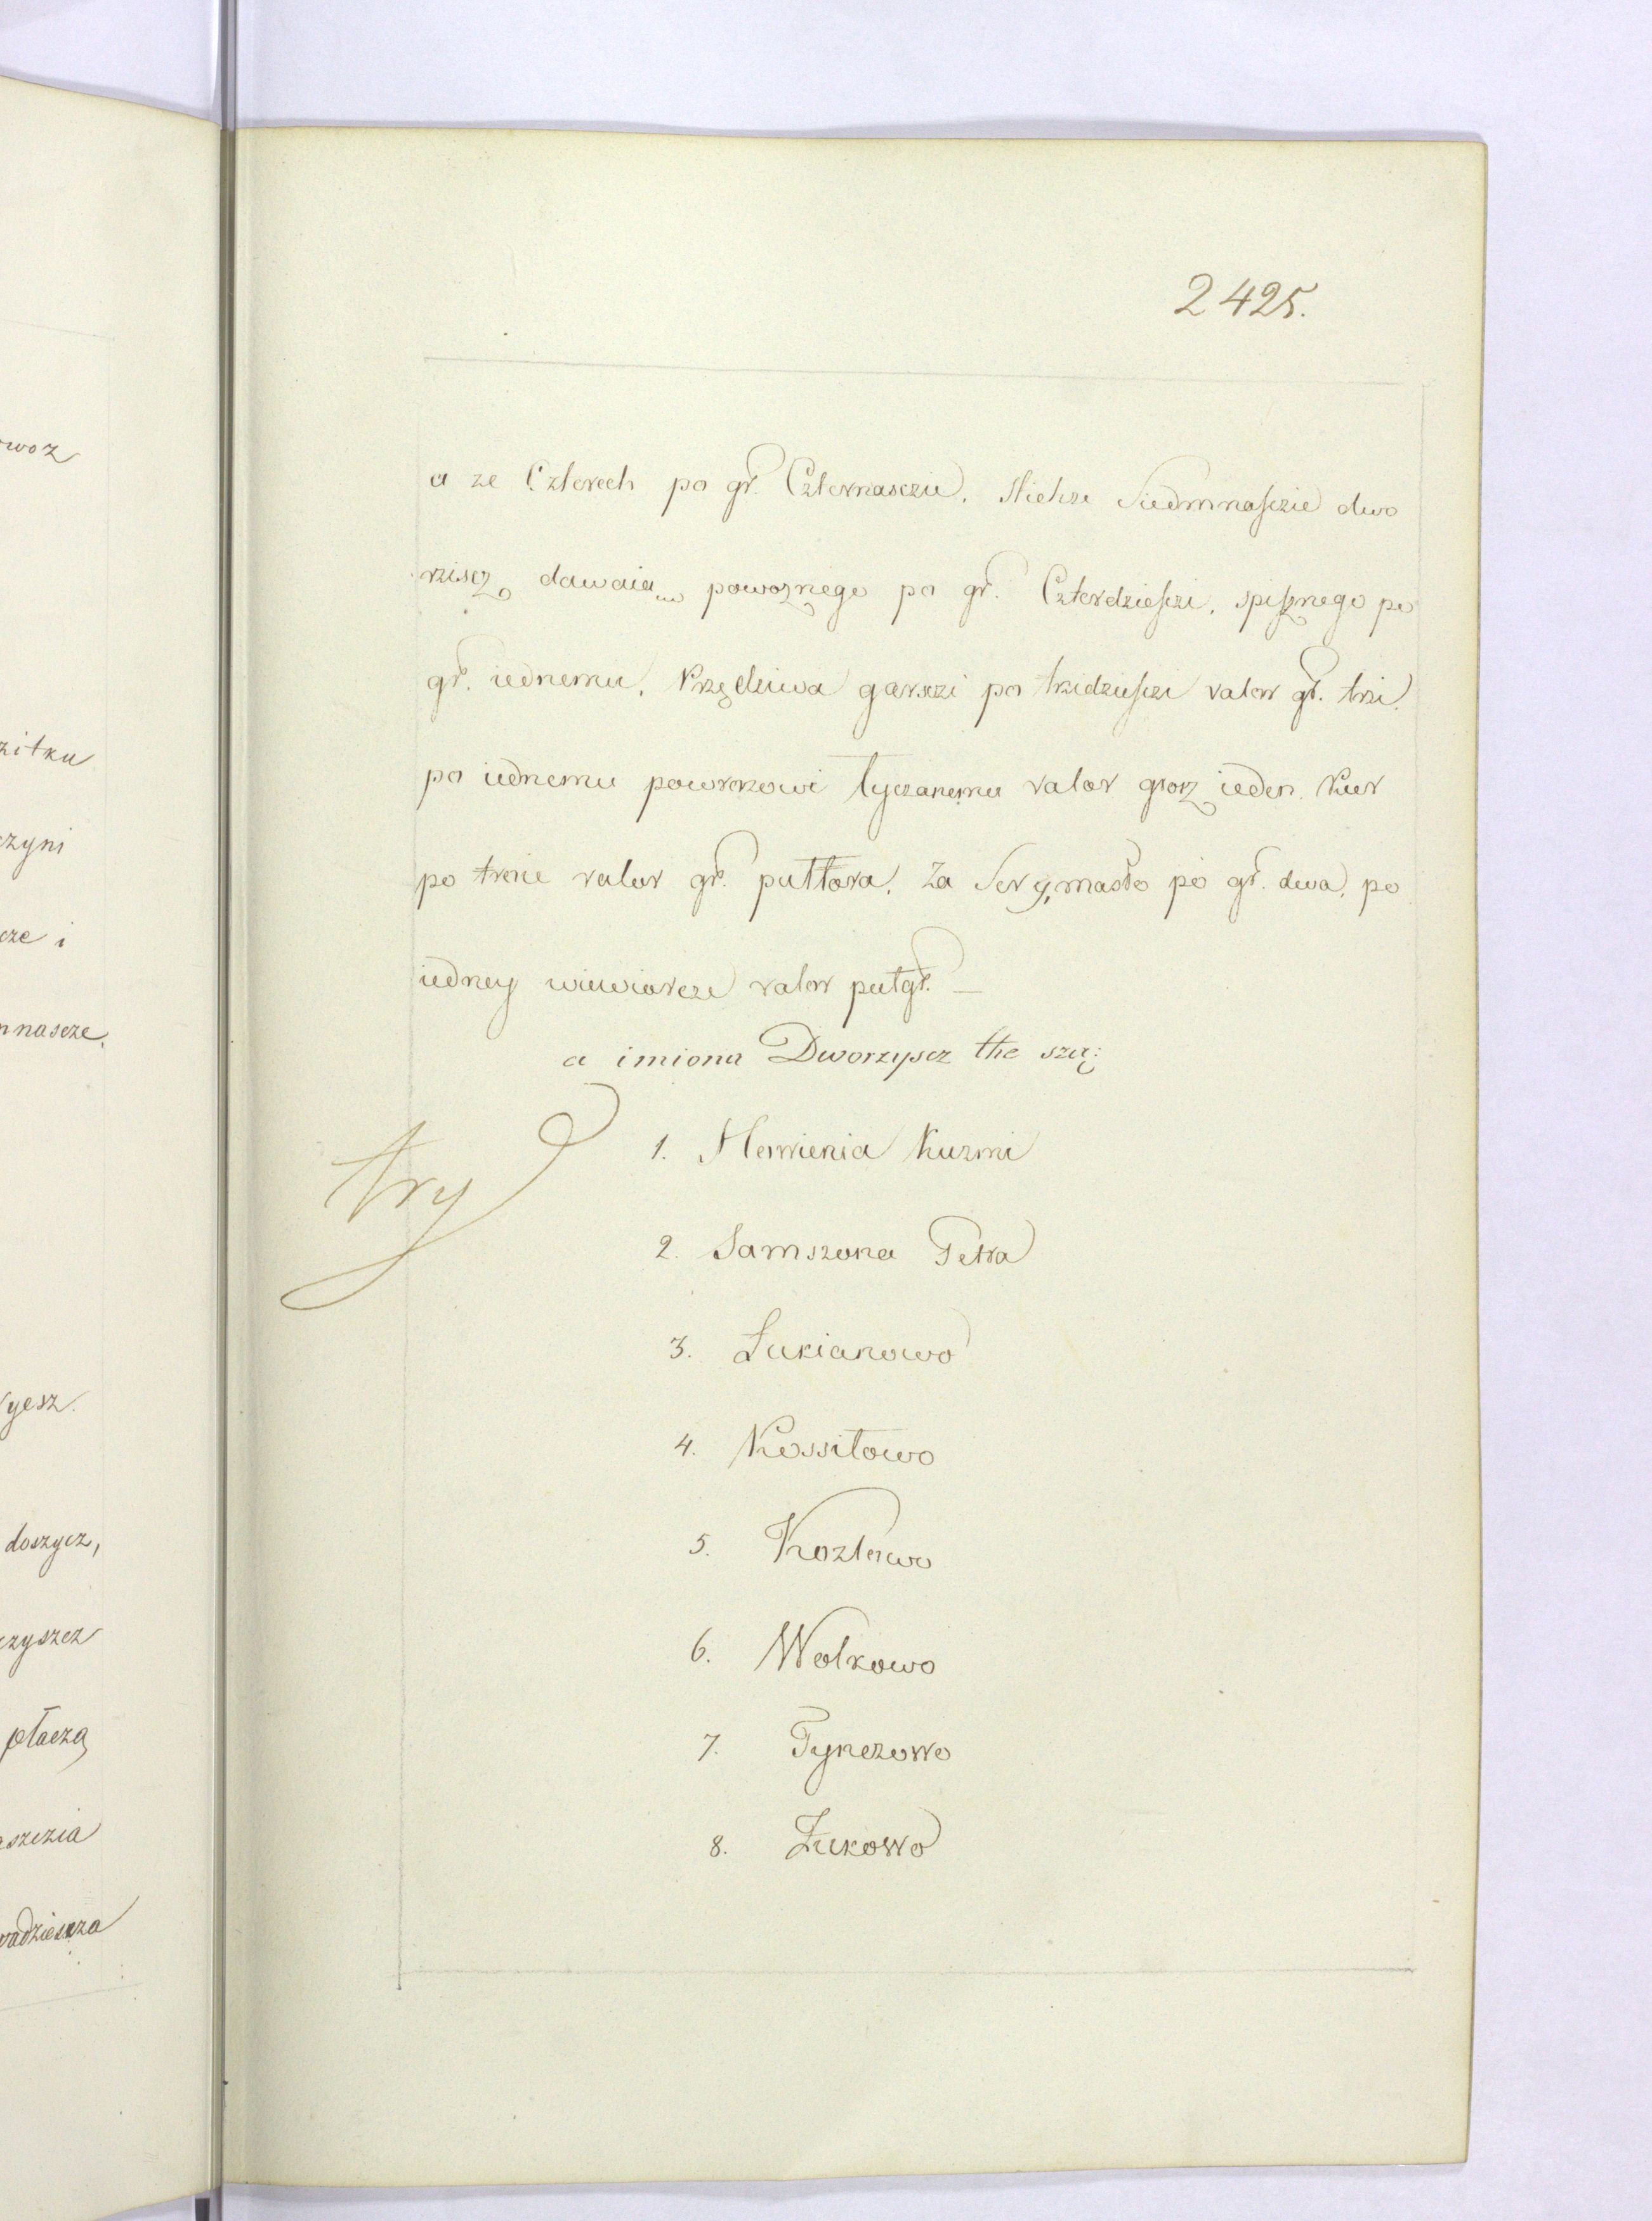 woz
zitku
czyni
cze i
nnascze.
yesz.
doszycz,
rzyszcz
płaczą
szczia
wadziescza
2425.
a ze Czterech po gr. Czternasczie. Siedmnasczie dwo
rziscz dawaią powoznego po gr. Czterdziesczi, spisznego po
gr. iednemu. Przędziwa garsczi po trzidziesczi valor gr. trzi.
po iednemu powrozowi łyczanemu valor grosz ieden. Kur
po troie valor gr. pułtora. Za Ser y masło po gr. dwa, po
iedney wiewiorcze valor pułgr. —
a imiona Dworzyscz the szą:
try
1. Kuzmi
2. Samszona Petra
3. Łukianowo
4. Kossiłowo
5. Kozłowo
6. Wołkowo
7. Tynczowo
8. Żukowo